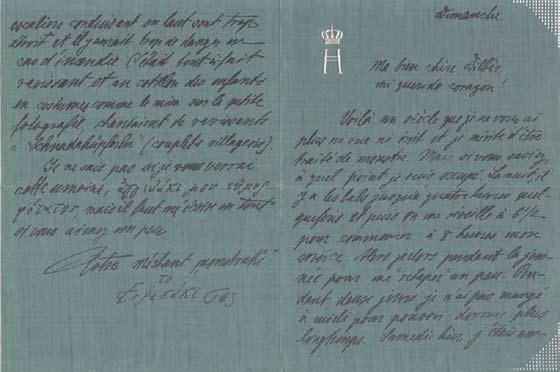 Dimanche
H
Ma bien chère Dilbér,
mi querido corazon!
Voilà un siècle que je ne vous ai
plus ni vue ni écrit et je mérite d'être
traité de monstre. Mais si vous saviez
à quel point je suis occupé. La nuit, il
y a les bals jusqu'à quatre heures quel-
quefois et puis on me réveille à 6 1/2
pour commencer à 8 heures mon
service. Alors je dors pendant la jour-
née pour me retaper un peu. Pen-
dant deux jours je n'ai pas mangé
à midi pour pouvoir dormir plus
longtemps. Samedi hier j'étais
escaliers conduisant en haut sont trop
étroit et il y aurait trop de danger en
cas d'incendie. C'était tout à fait
ravissant et au cotillon des enfants
en costumes comme le mien sur la petite
fotografie chantaient de ravissants
„Schnadahüpferln (couplets villageois).
Je ne sais pas si je vous verrai
cette semaine, μου
mais il faut m'écrire en tout
si vous aimez un peu
Votre méchant
το
σας